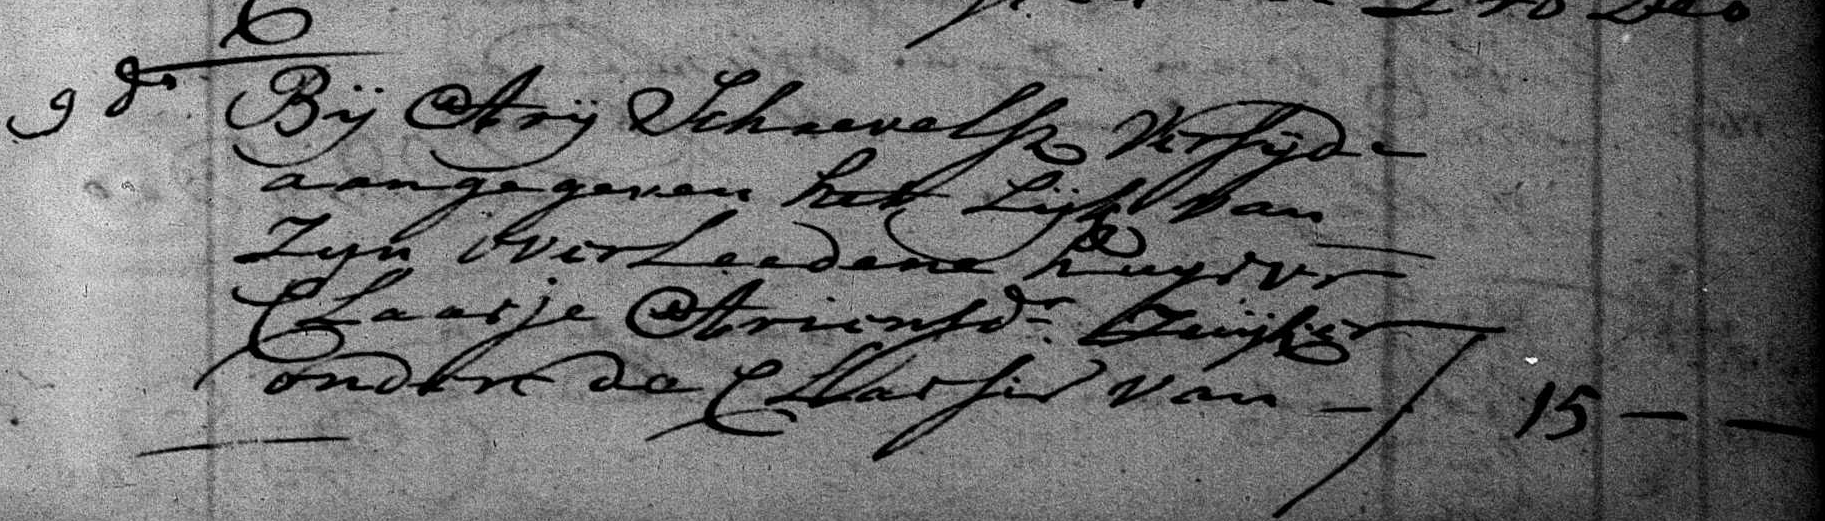 9 do
Bij Arij Schaevelsz Versijde
aangegeven het Lijk van
Zyn overLeedene huysvr
Claasje Ariensdr Zwijker
onder de Classis van — 15 — —